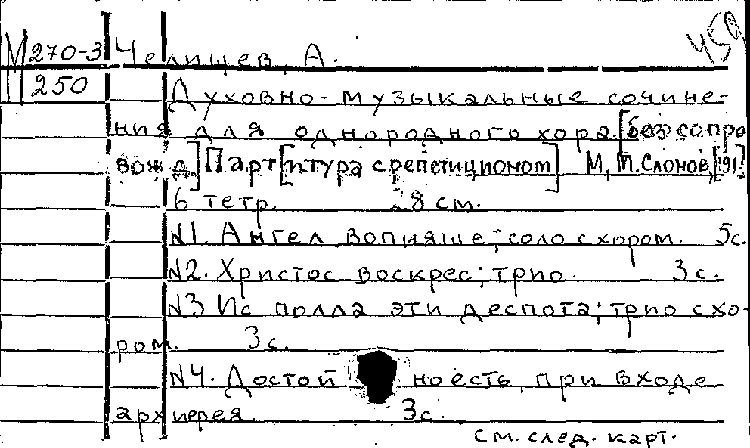 459
М 270-3 Челищев, А.
250
Духовно-музыкальные сочине-
ния для однородного хора [без сопро
вожд] Парт[итура с репетиционом] М, П. Слонов,
6 тетр. 28 см.
N1. Ангел вопияше; соло с хором. 5с.
N2. Христос воскрес; трио. 3с.
N3 Ис полла эти деспота; трио с хо-
ром. 3с.
N4. Достой но есть, при входе
архиерея. 3с.
см. след. карт.